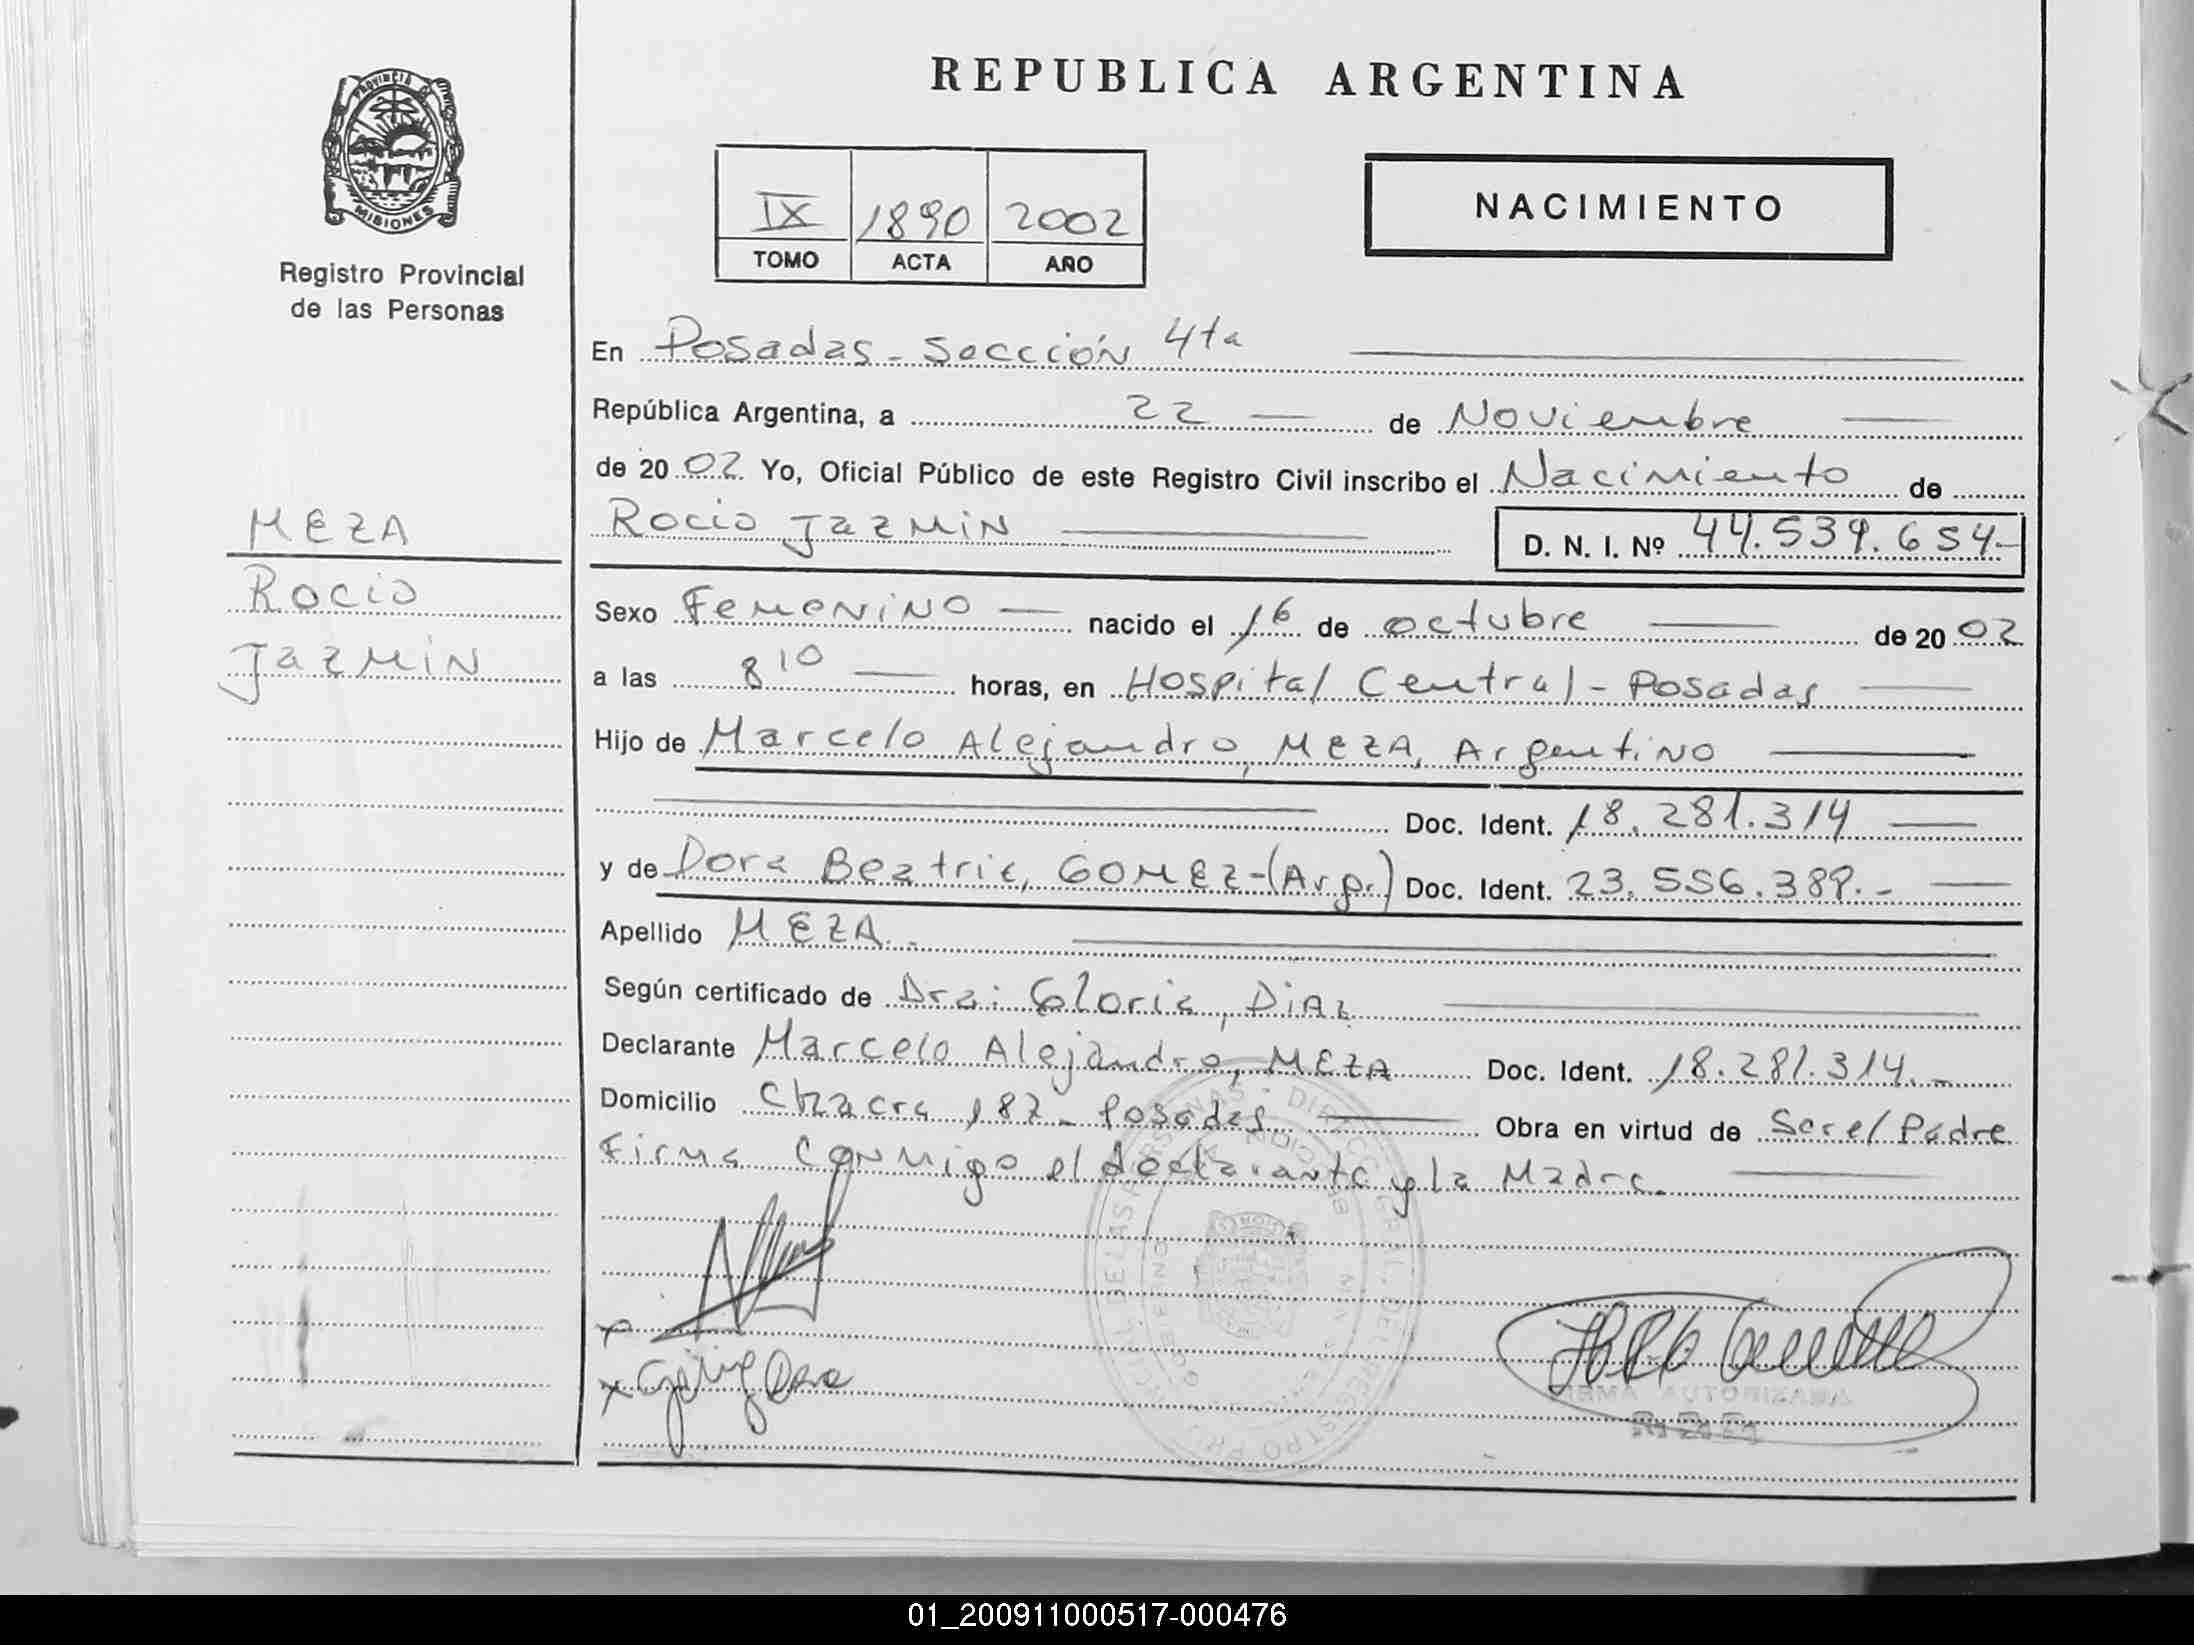 REPUBLICA ARGENTINA
PROVINCIA DE
MISIONES
Registro Provincial
de las Personas
IX 1890 2002
TOMO ACTA AÑO
NACIMIENTO
En Posadas - Sección 4ta
República Argentina, a 22 de Noviembre
de 20 02 Yo, Oficial Público de este Registro Civil inscribo el Nacimiento de
Rocio Jazmin D. N. I. Nº 44.539.654-
MEZA
Rocio
Jazmin
Sexo Femenino nacido el 16 de octubre de 20 02
a las 8 10 horas, en Hospital Central - Posadas
Hijo de Marcelo Alejandro, MEZA, Argentino
Doc. Ident. 18.281.314
y de Dora Beatriz, GOMEZ - (Arg.) Doc. Ident. 23.556.389.-
Apellido MEZA.-
Según certificado de Dra: Gloria, DIAZ
Declarante Marcelo Alejandro, MEZA Doc. Ident. 18.281.314.-
Domicilio Chacra 182 - Posadas Obra en virtud de Ser el Padre
Firma Conmigo el declarante y la Madre.
FIRMA AUTORIZADA
01_200911000517-000476